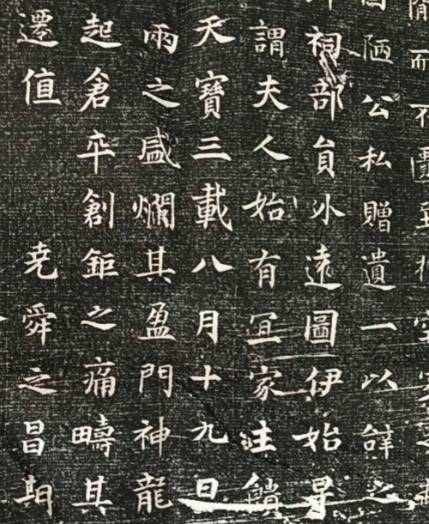 而不匱
陋公私贈遺一以辭之
祠部員外遠圖伊始尋
謂夫人始有冝家主饋
天寶三載八月十九日
兩之盛爛其盈門神龍
起倉卒創鉅之痛疇其
遷值 堯舜之昌期